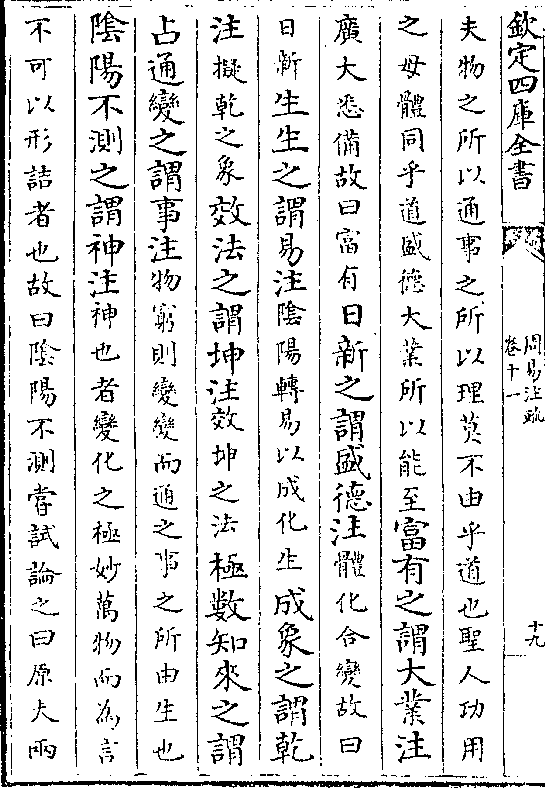 欽定四庫全書
周易注疏
卷十一
十九
夫物之所以通事之所以理莫不由乎道也聖人功用
之母體同乎道盛德大業所以能至富有之謂大業注
廣大悉備故曰富有日新之謂盛德注體化合變故曰
日新生生之謂易注陰陽轉易以成化生成象之謂乾
注擬乾之象效法之謂坤注效坤之法極數知來之謂
占通變之謂事注物窮則變變而通之事之所由生也
陰陽不測之謂神注神也者變化之極妙萬物而為言
不可以形詰者也故曰陰陽不測嘗試論之曰原夫兩